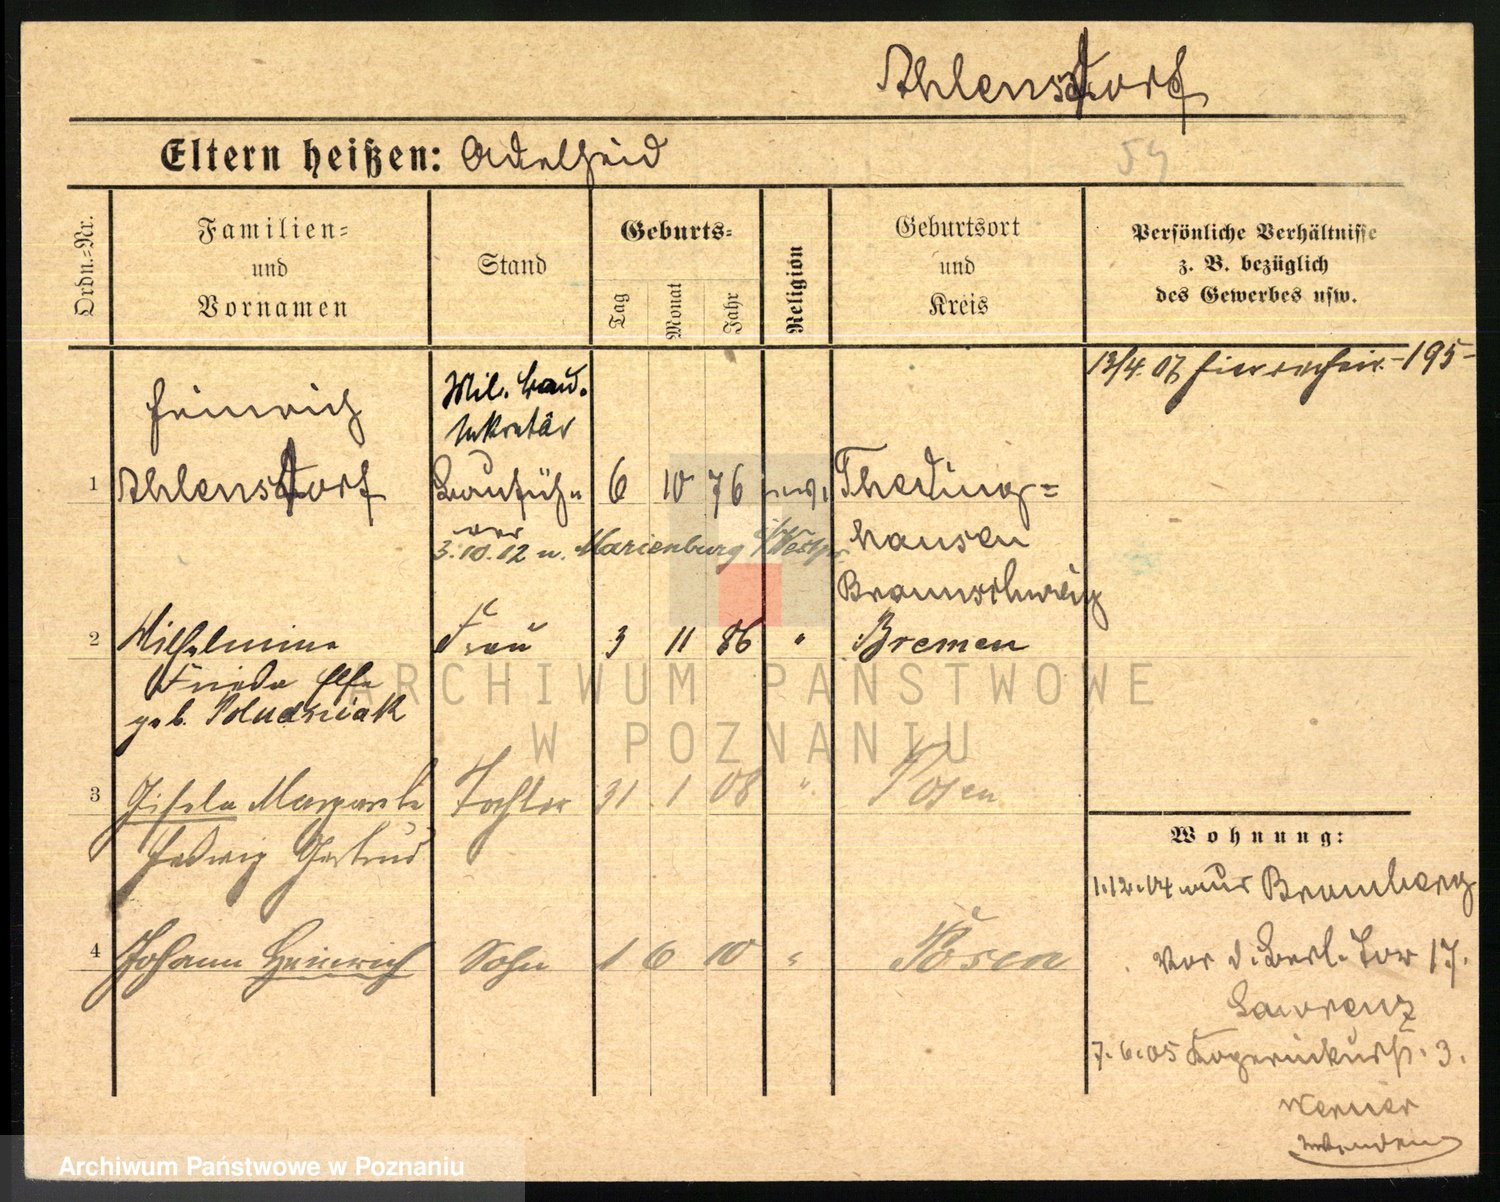 Ahlensdorf
Eltern heißen: Adelheid
54
Ordn.-Nr.
Familien-
und
Vornamen
Stand
Geburts-
Tag
Monat
Jahr
Religion
Geburtsort
und
Kreis
Persönliche Verhältnisse
z. B. bezüglich
des Gewerbes usw.
13/4. 07 -195-
Heinrich
Mil. Bau.
Sekretär
1 Ahlensdorf Baufüh- 6 10 76 Theding=
rer hausen
3.10.12 n. Marienburg i/Westpr.
Braunschweig
2 Wilhelmine Frau 3 11 86 " Bremen
Frieda Else
geb.
3 Gisela Margarete Tochter 31 1 08 " Posen
Hedwig Gertrud
4 Johann Heinrich Sohn 1 6 10 " Posen
Wohnung:
1.12.04 aus Bromberg
Vor d. Berl. Tor 17.
Lawrenz
7.6.05 3.
Werner
wenden
ARCHIWUM PAŃSTWOWE
W POZNANIU
Archiwum Państwowe w Poznaniu